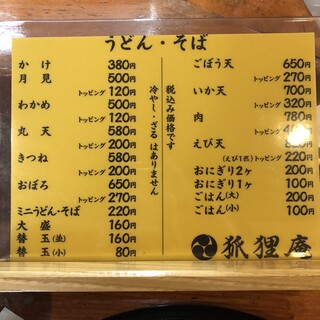 うどん・そば
かけ 380円
月見 500円
トッピング 120円
わかめ 500円
トッピング 120円
丸天 580円
トッピング 200円
きつね 580円
トッピング 200円
おぼろ 650円
トッピング 270円
ミニうどん・そば 220円
大盛 160円
替玉(並) 160円
替玉(小) 80円
冷やし・ざる はありません
税込み価格です
ごぼう天 650円
トッピング 270円
いか天 700円
トッピング 320円
肉 780円
トッピング
えび天
(えび1匹)トッピング 220円
おにぎり2ヶ 200円
おにぎり1ヶ 100円
ごはん(大) 200円
ごはん(小) 100円
狐狸庵